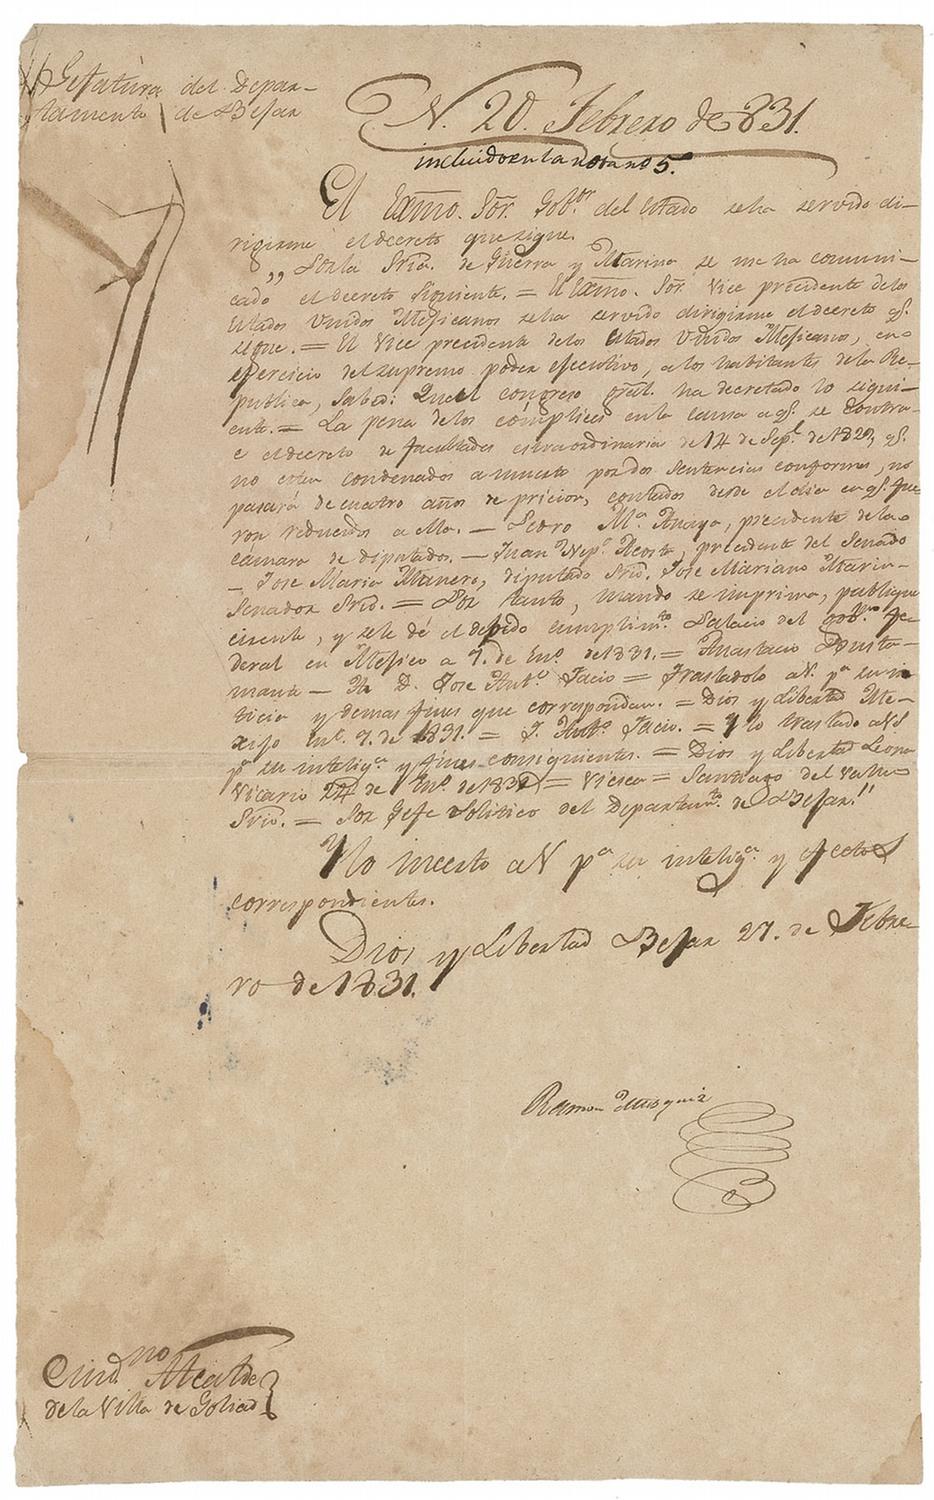 Gefatura del Depar-
tamento de Bejar
N. 20. Febrero de 831.
incluido en la nota no 5.
El Exmo. Sor. Gobor. del Estado se ha servido di-
rigirme el decreto que sigue.
„ Por la Sria. de Guerra y Marina se me ha comuni-
cado el decreto siguiente. = El Exmo. Sor. Vice precidente de los
Estados Unidos Mejicanos se ha servido dirigirme el decreto qe.
sigue. = El Vice precidente de los Estados Unidos Mejicanos, en
ejercicio del supremo poder ejecutivo, a los habitantes de la Re-
publica, sabed: Que el congreso gral. ha decretado lo sigui-
ente. = La pena de los cómplices en la causa a qe. se contra-
e el decreto de facultades extraordinarias de 14 de Sepe. de 1829, qe.
no esten condenados a muerte por dos sentencias conformes, no
pasará de cuatro años de pricion, contados desde el dia en qe. fue
ron reducidos a ella. — Pedro Ma. Anaya, precidente de la
camara de diputados. — Juan Nepo. Acosta, precidente del Senado
— Jose Maria Manero, diputado Srio. Jose Mariano Marin-
Senador Srio. = Por tanto, mando se imprima, publique
circule, y se le dé el debido cumplimto. Palacio del gobno. fe-
deral en Mejico a 7. de Eno. de 1831. = Anastacio Busta-
mante — A D. Jose Anto. Facio = Trasladolo a V. pa. su no
ticia y demas fines que correspondan. = Dios y Libertad Me-
xijo Eno. 7. de 1831. = J. Anto. Facio. = Y lo traslado a V.S
pa. su inteliga. y fines consiguientes. = Dios y Libertad Leona
Vicario 24 de Eno. de 1831 = Viesca = Santiago del Valle
Srio. = Sor Gefe Politico del Departamto. de Bejar."
Y lo incerto a V pa. su inteliga. y efectos
correspondientes.
Dios y Libertad Bejar 27. de Febre-
ro de 1831.
Ramon Musquiz
Ciudno. Alcalde
de la Villa de Goliad